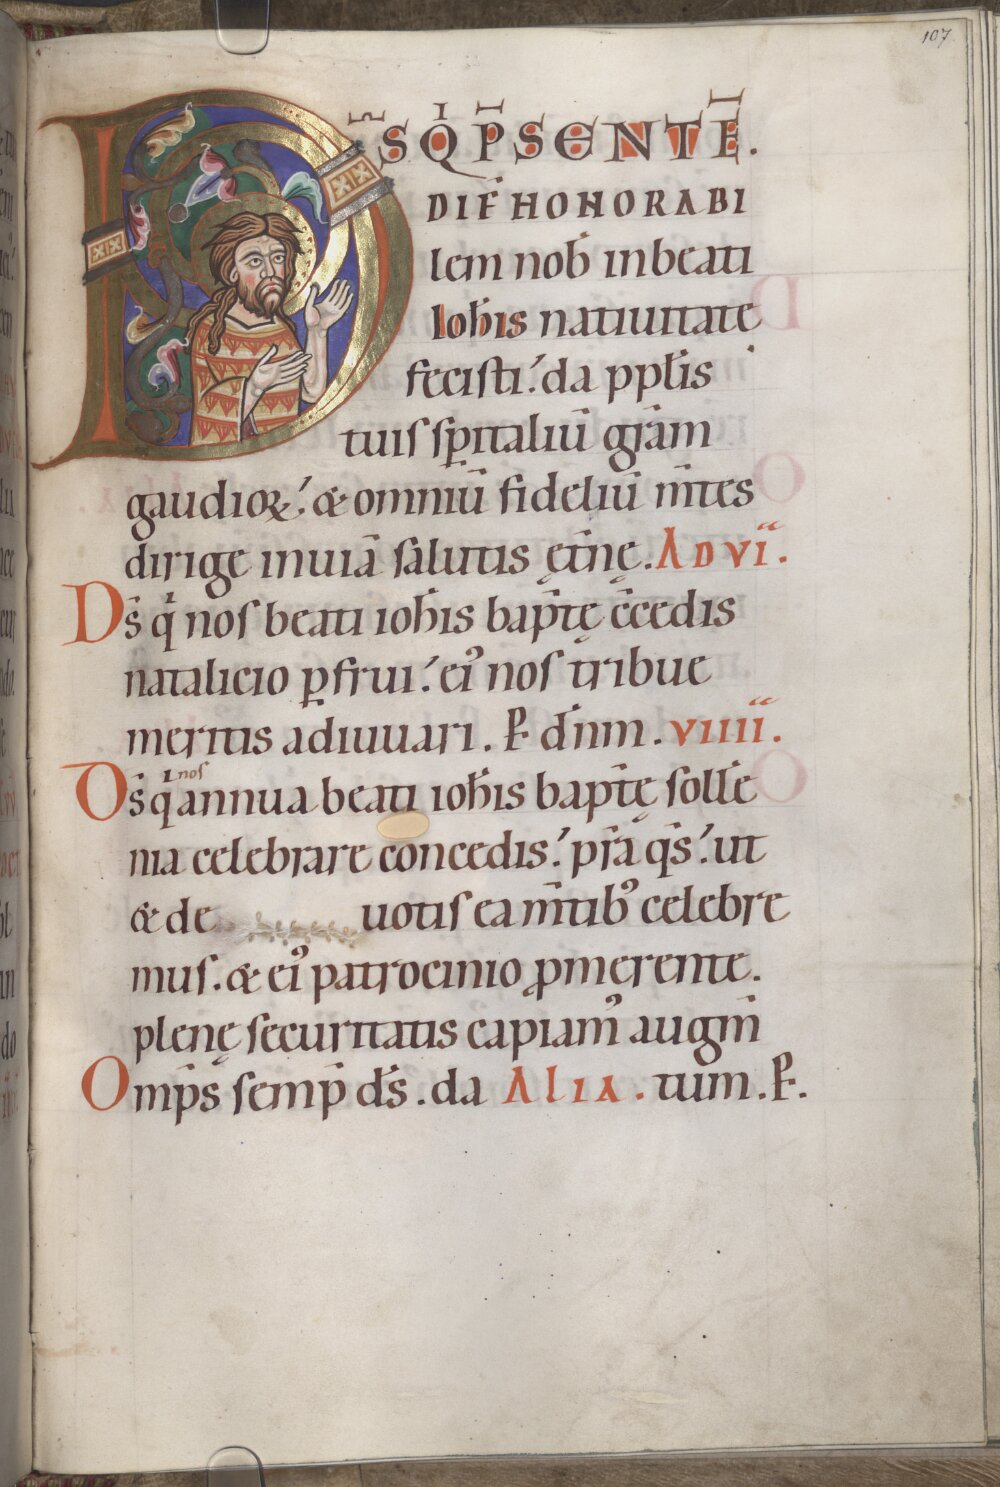 107
DS̄ Q̇I P̄SENTĒ.
DIĒ HONORABI
lem nob̄ inbeati
Ioh̄is natiuitate
fecisti: da ppl̄is
tuis sp̄italiū grām
gaudioꝝ: & omniū fideliū m̄tes
dirige inuiā salutis ęt̄nę. AD VĪ.
Ds̄ q̇ nos beati ioh̄is bap̄tę c̄cedis
natalicio ꝑfrui: eiꝰ nos tribue
meritis adiuuari. P̄ dn̄m. VIIIĪ.
Os̄ q̇ nos annua beati ioh̄is bap̄tę soll̄e
nia celebrare concedis: pr̄a qs̄: ut
& de uotis ea m̄tibꝰ celebre
mus. & eiꝰ patrocinio ꝓmerente.
plenę securitatis capiamꝰ augm̄
Omp̄s semp̄ ds̄. da ALIA. tum. P̄.